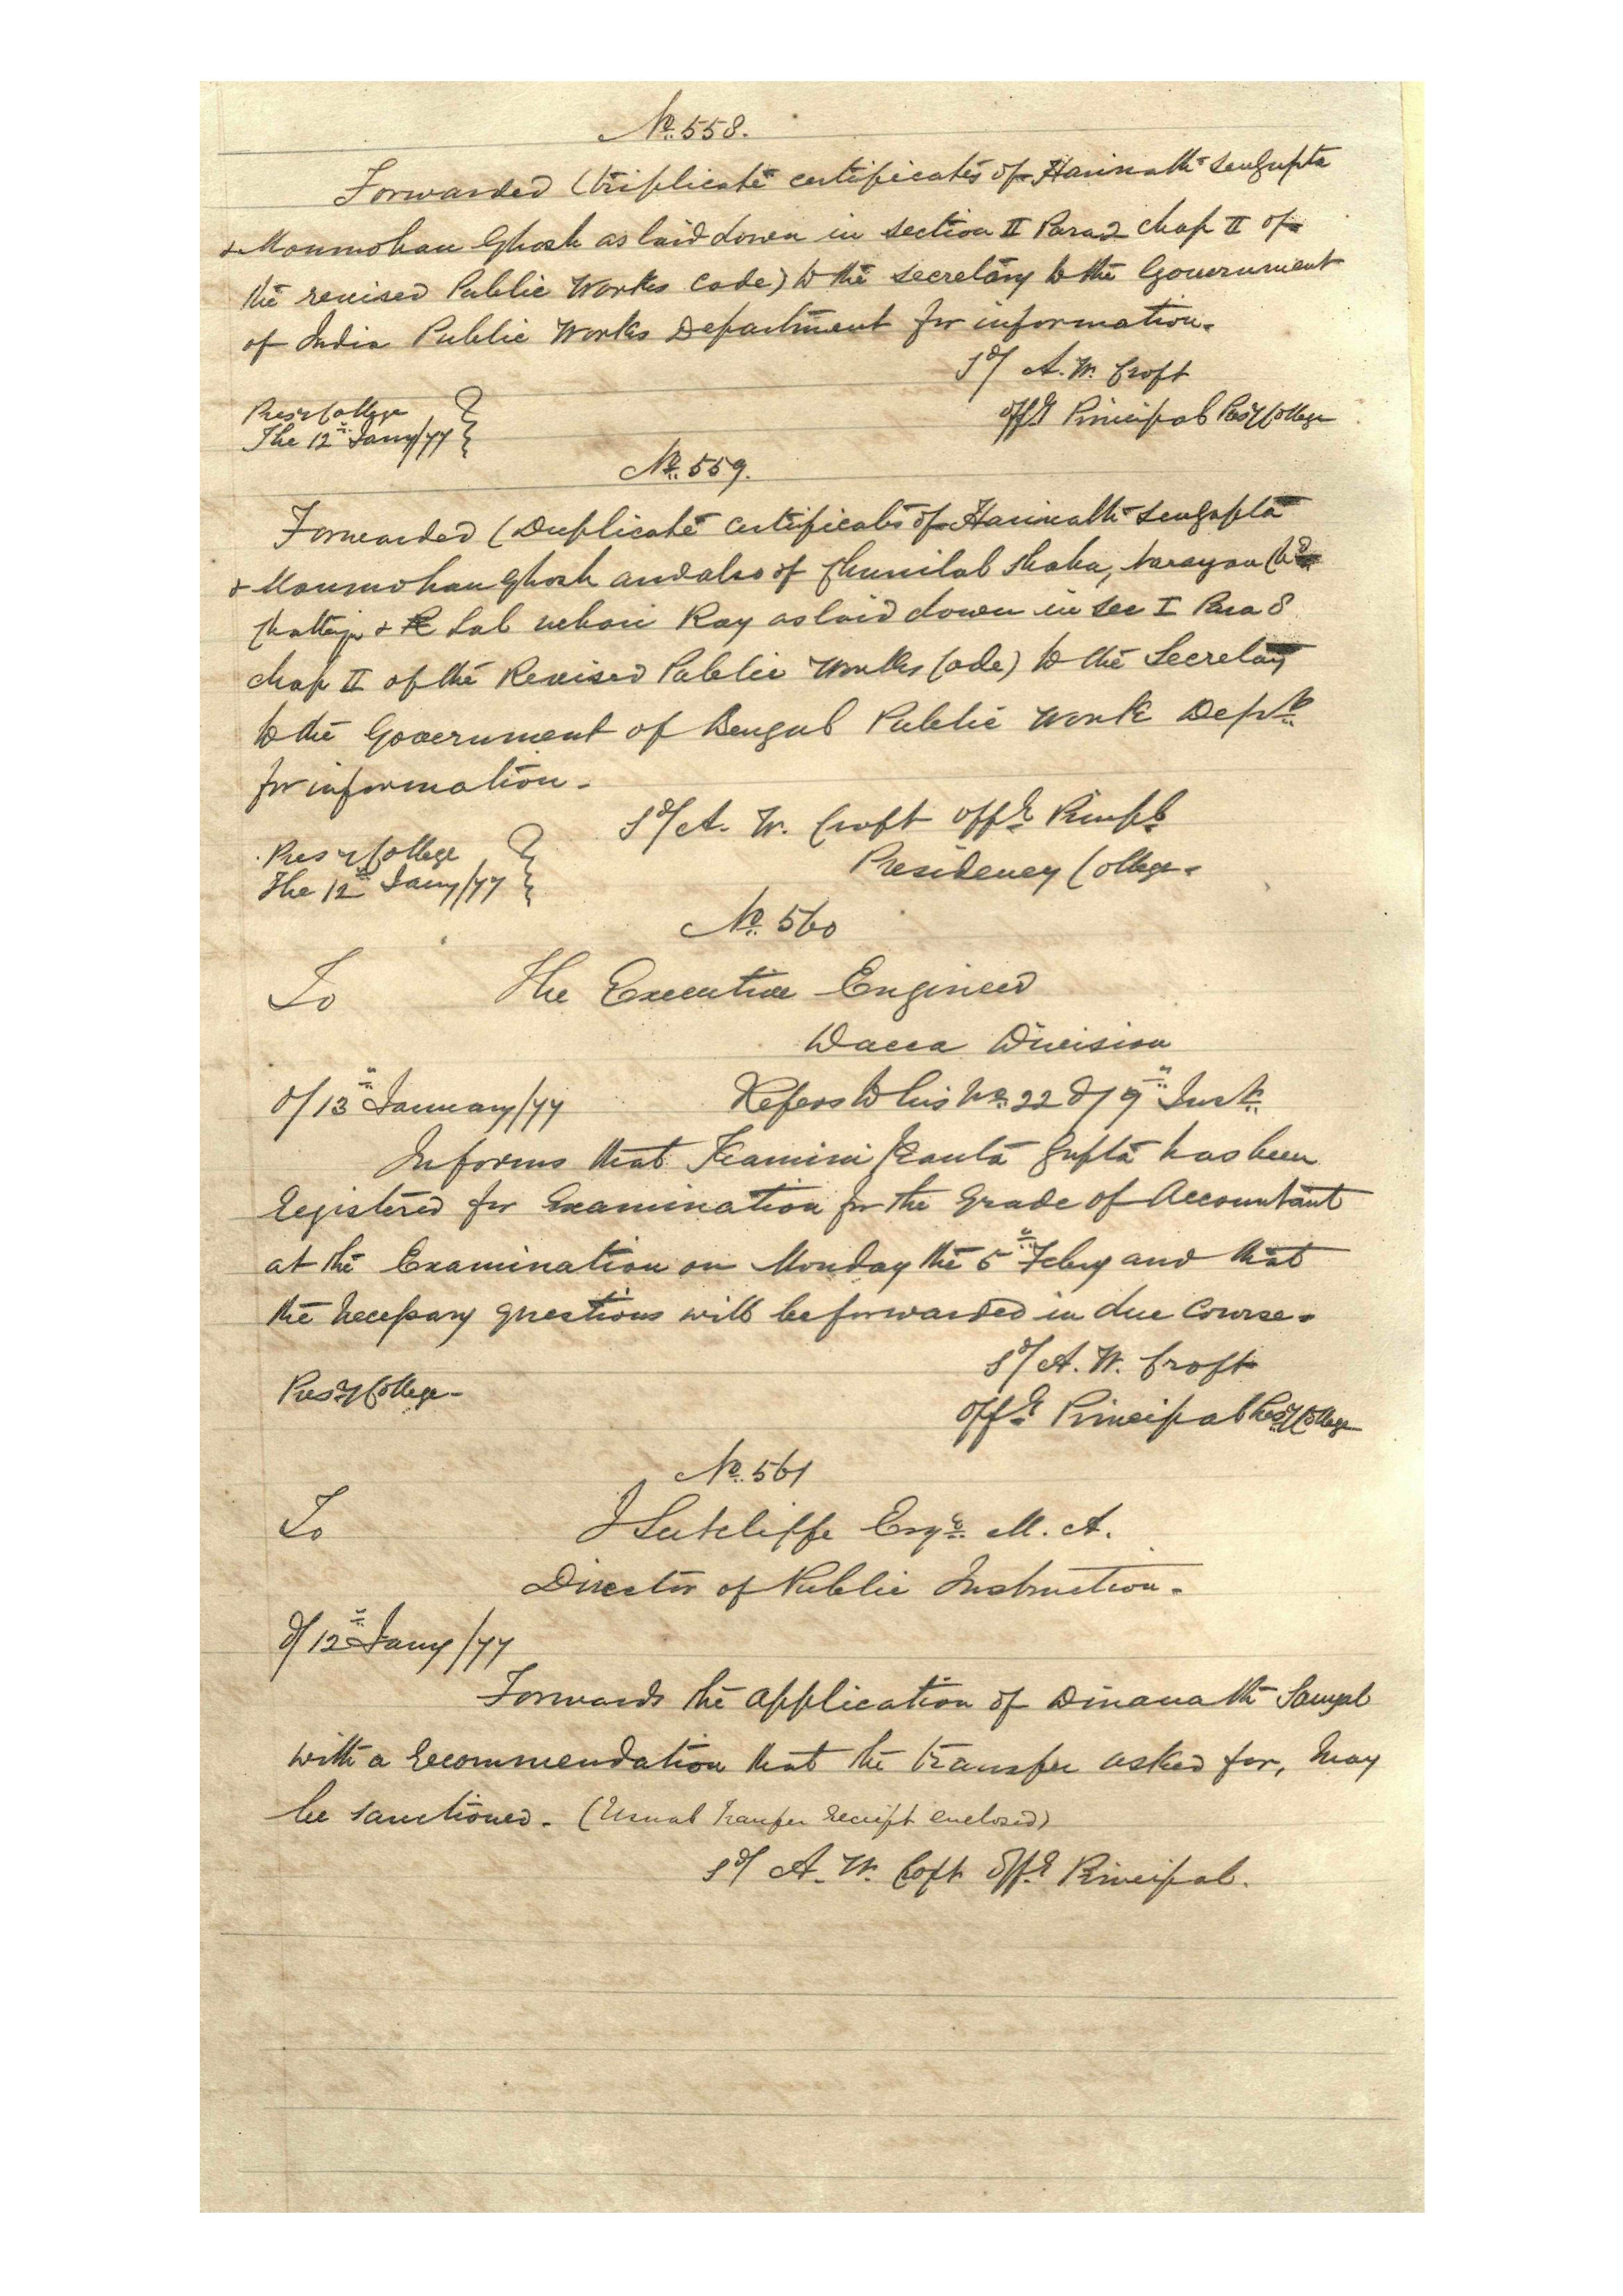 No. 558.
Forwarded (triplicate certificates of Harinath Sengupta
& Monmohan Ghosh as laid down in section II Para 2 chap II of
the revised Public Works Code) to the Secretary to the Government
of India Public Works Department for information.
Sd/ A. W. Croft
Offg Principal Presy College
Presy College
The 12th Jany/77
No. 559.
Forwarded (Duplicate certificates of Harinath Sengupta
& Monmohan Ghosh and also of Chunilal Shaha, Narayan Ch
Chatterji & Lal behari Ray as laid down in Sec I Para 8
chap II of the Revised Public Works Code) to the Secretary
to the Government of Bengal Public Work Dept.
for information.
Sd/ A. W. Croft Offg Principl
Presidency College.
Presy College
The 12th Jany/77
No. 560
To The Executive Engineer
Dacca Division
d/ 13th January/77 Refers to his No. 22 d/ 9th Inst.
Informs that Kamini Kanta Gupta has been
registered for Examination for the Grade of Accountant
at the Examination on Monday the 5th Feby and that
the necessary questions will be forwarded in due course.
Sd/ A. W. Croft
Presy College.
Offg Principal Presy College
No. 561
To J Sutcliffe Esqre. M. A.
Director of Public Instruction.
d/ 12th Jany/77
Forwards the application of Dinanath Sanyal
with a recommendation that the transfer asked for, may
be sanctioned. (Usual Transfer receipt enclosed)
Sd/ A. W. Croft Offg Principal.